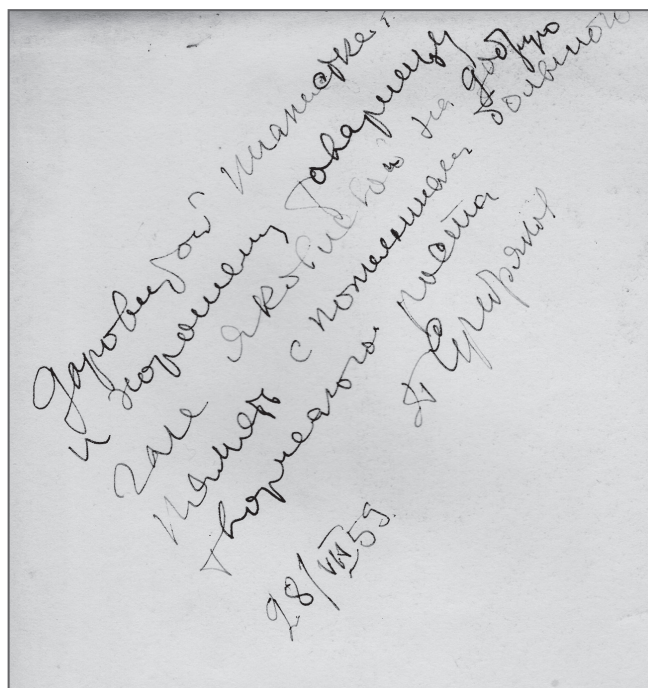 даровитой пианистке
и хорошему товарищу
Гале Яковлевой на добрую
память с пожеланием большого
творческого роста
П Серебряков
28/VIII 59.